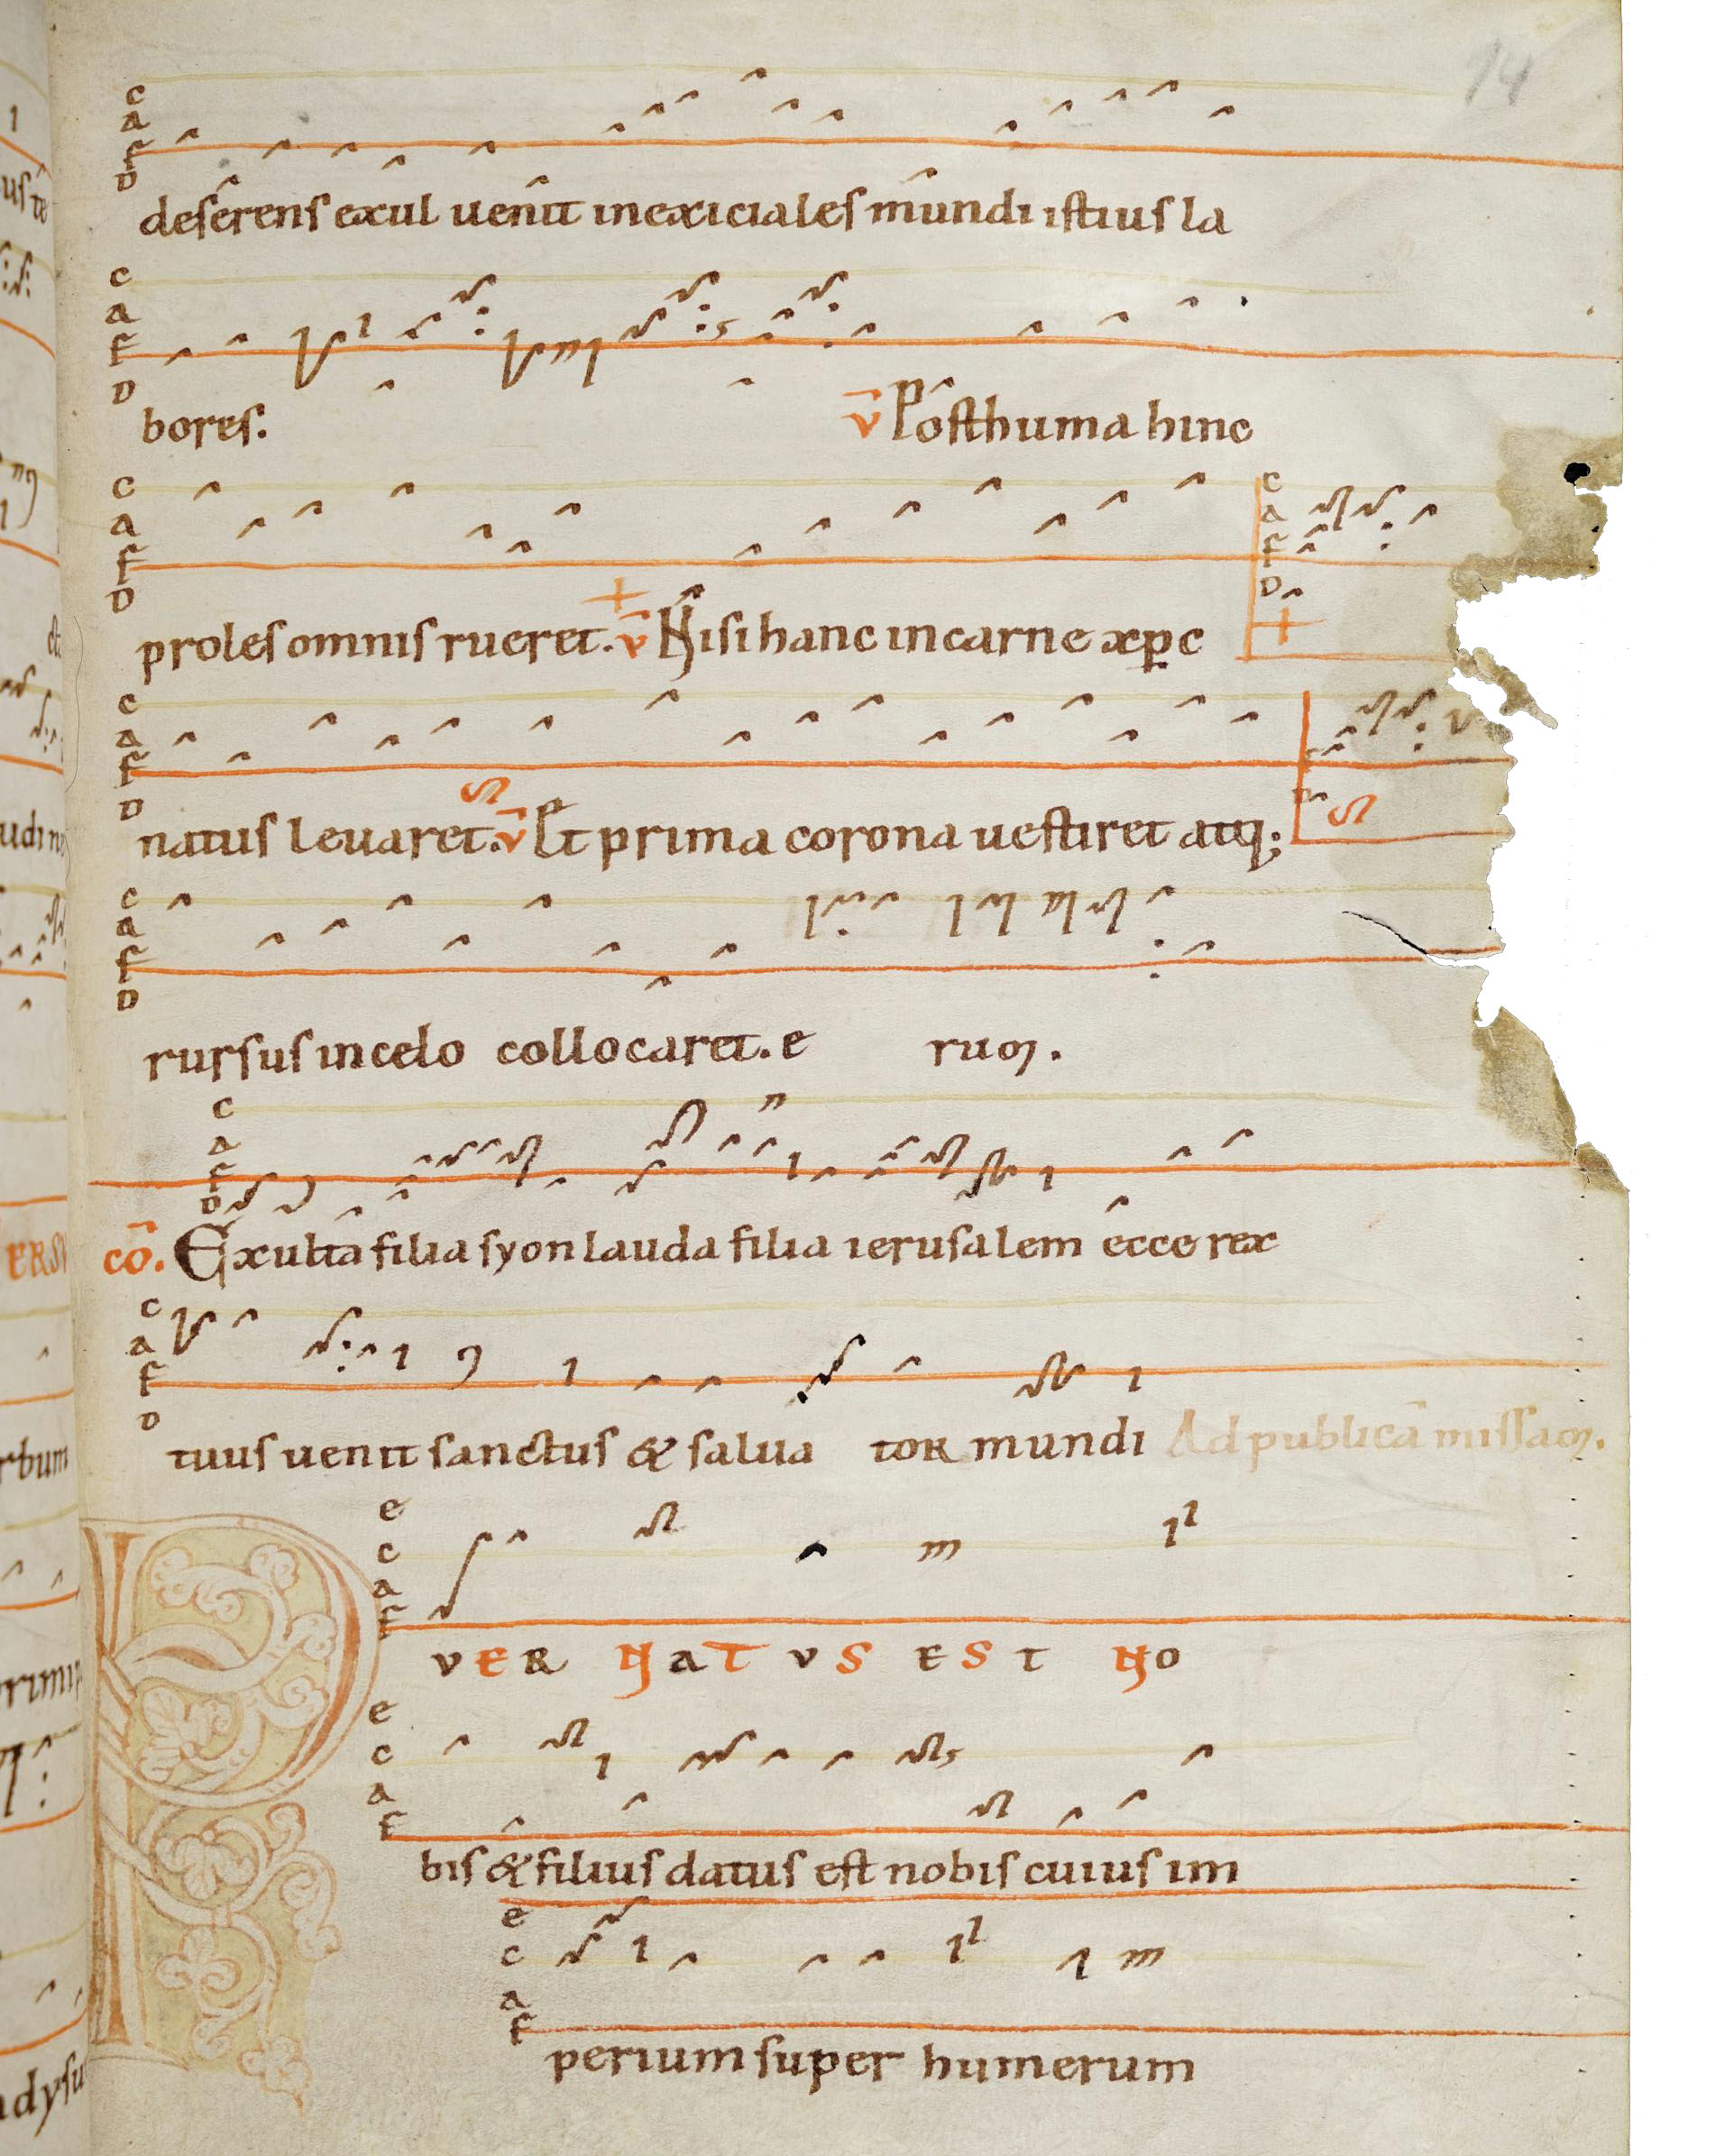 14
deserens exul uenit inexiciales mundi istius la
bores. v̄ Posthuma hinc
proles omnis rueret. v̄ Nisi hanc in carne xp̄c
natus leuaret. v̄ Et prima corona uestiret atq;
rursus in celo collocaret. e rum.
cō. Exulta filia syon lauda filia ierusalem ecce rex
tuus uenit sanctus & saluator mundi Ad publicā missam.
PVER NATVS EST NO
bis & filius datus est nobis cuius im
perium super humerum